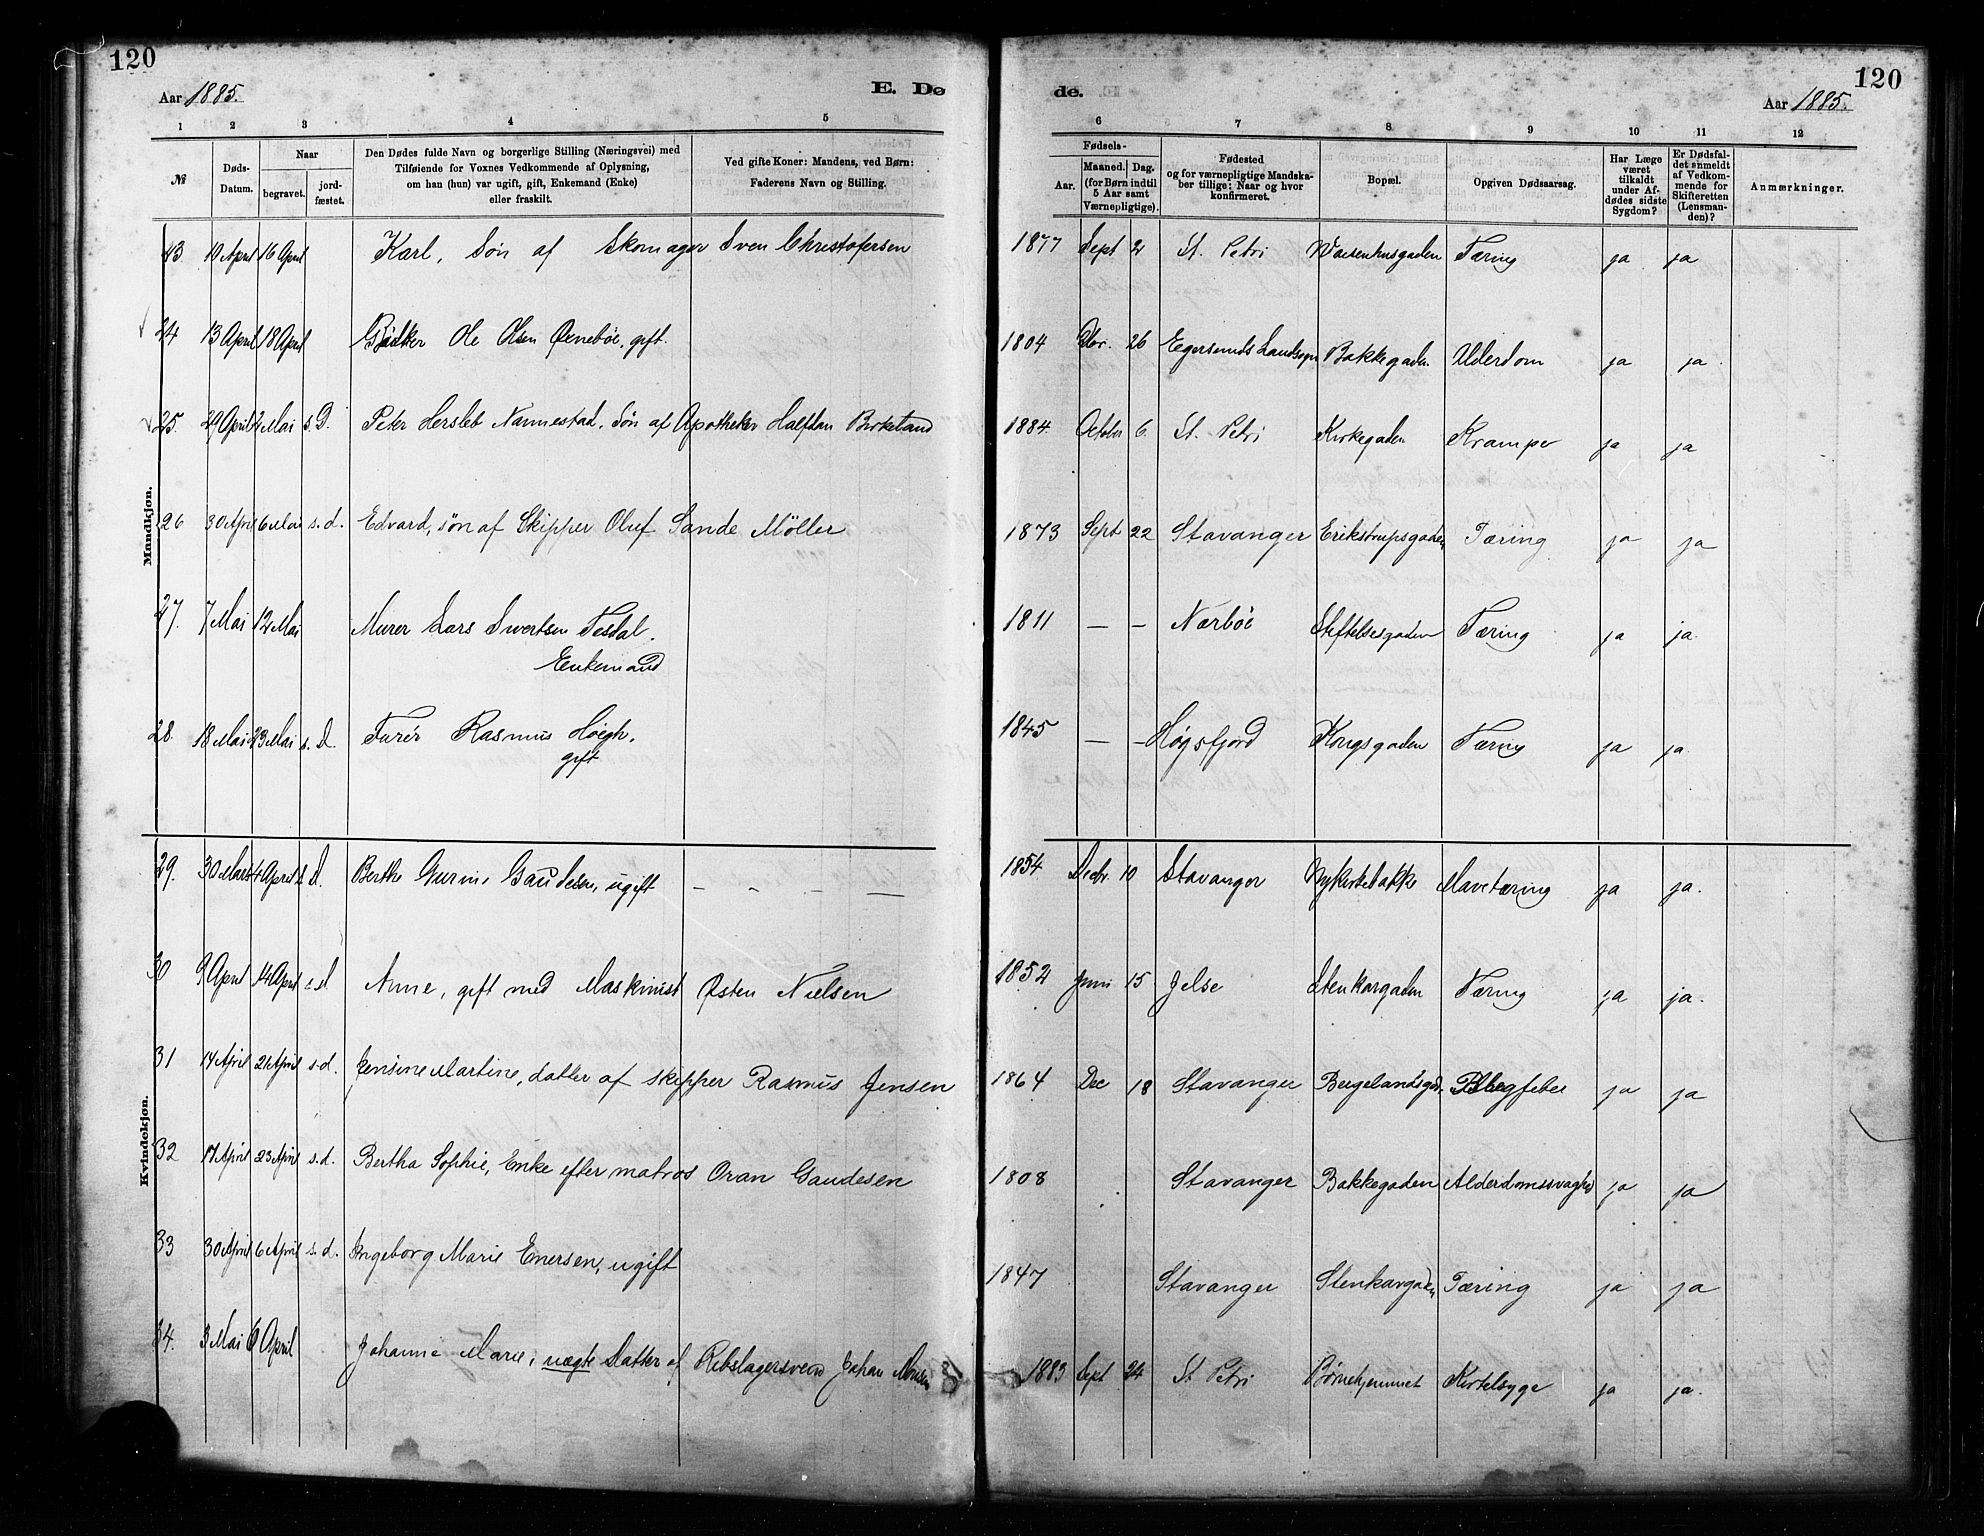 120
120
Aar 1885.
E. De
de.
Aar 1885.
1 2 3 4 5 6 7 8 9 10 11 12
№
Døds-
Datum.
Naar
begravet.
jord-
fæstet.
Den Dødes fulde Navn og borgerlige Stilling (Næringsvei) med
Tilføiende for Voxnes Vedkommende af Oplysning,
om han (hun) var ugift, gift, Enkemand (Enke)
eller fraskilt.
Ved gifte Koner: Mandens, ved Børn:
Faderens Navn og Stilling.
Fødsels-
Aar.
Maaned. Dag.
(for Børn indtil
5 Aar samt
Værnepligtige).
Fødested
og for værnepligtige Mandska-
ber tillige: Naar og hvor
konfirmeret.
Bopæl.
Opgiven Dødsaarsag.
Har Læge
været
tilkaldt
under Af-
dødes sidste
Sygdom?
Er Dødsfal-
det anmeldt
af Vedkom-
mende for
Skifteretten
(Lensman-
den)?
Anmærkninger.
Mandkjøn.
23 10 April 16 April Karl, Søn af Skomager Sven Christofersen 1877 Sept 2 St. Petri Waisenhusgaden Tæring ja ja
24 13 April 18 April Bødker Ole Olsen Ørnebøe, gift. 1804 26 Egersunds Landsogn Bakkegaden Alderdom ja ja
25. 29 April 2 Mai s. D. Peter Hersleb Nannestad, Søn af Apotheker Halfdan Birkeland 1884. October 6. St. Petri Kirkegaden Kramper ja ja
26 30 April 6 Mai s. d. Edvard, søn af Skipper Oluf Sande Möller 1873 Sept 22 Stavanger Erikstrupsgaden Tæring ja ja
27. 7 Mai 12 Mai Murer Lars Sivertsen Tesdal. 1811 — — Nærbøe Stiftelsesgaden Tæring ja ja.
Enkemand
28. 18 Mai 23 Mai s. D. Furér Rasmus Høegh. 1845 — — Høgsfjord Kongsgaden Tæring ja ja.
gift
Kvindekjøn.
29. 30 Mars 4 April s. D. Berthe Gurine Gaudesen, ugift — „ — — 1854 Decbr. 10 Stavanger Nykirkebakke Mavetæring ja ja.
30 9 April 14 April s. d Anne, gift med Maskinist Østen Nielsen 1852 Juni 15 Jelse Stenkargaden Tæring ja ja.
31 14 April 21 April s. d. Jensine Martine, datter af skipper Rasmus Jensen 1864 Dec 18 Stavanger Bergelandsgd. ja ja
32 17 April 23 April s. d. Bertha Sophie, Enke efter matros Oran Gaudesen 1808 Stavanger Bakkegaden Alderdomssvaghd ja ja
33 30 April 6 April s. d. Ingeborg Marie Enersen, ugift 1847 Stavanger Stenkargaden Tæring ja ja
34. 3 Mai 6 April Johanne Marie, uægte Datter af Rebslagersvend Johan 1883 Sept 24 St. Petri Børnehjemmet Kirtelsyge ja ja.